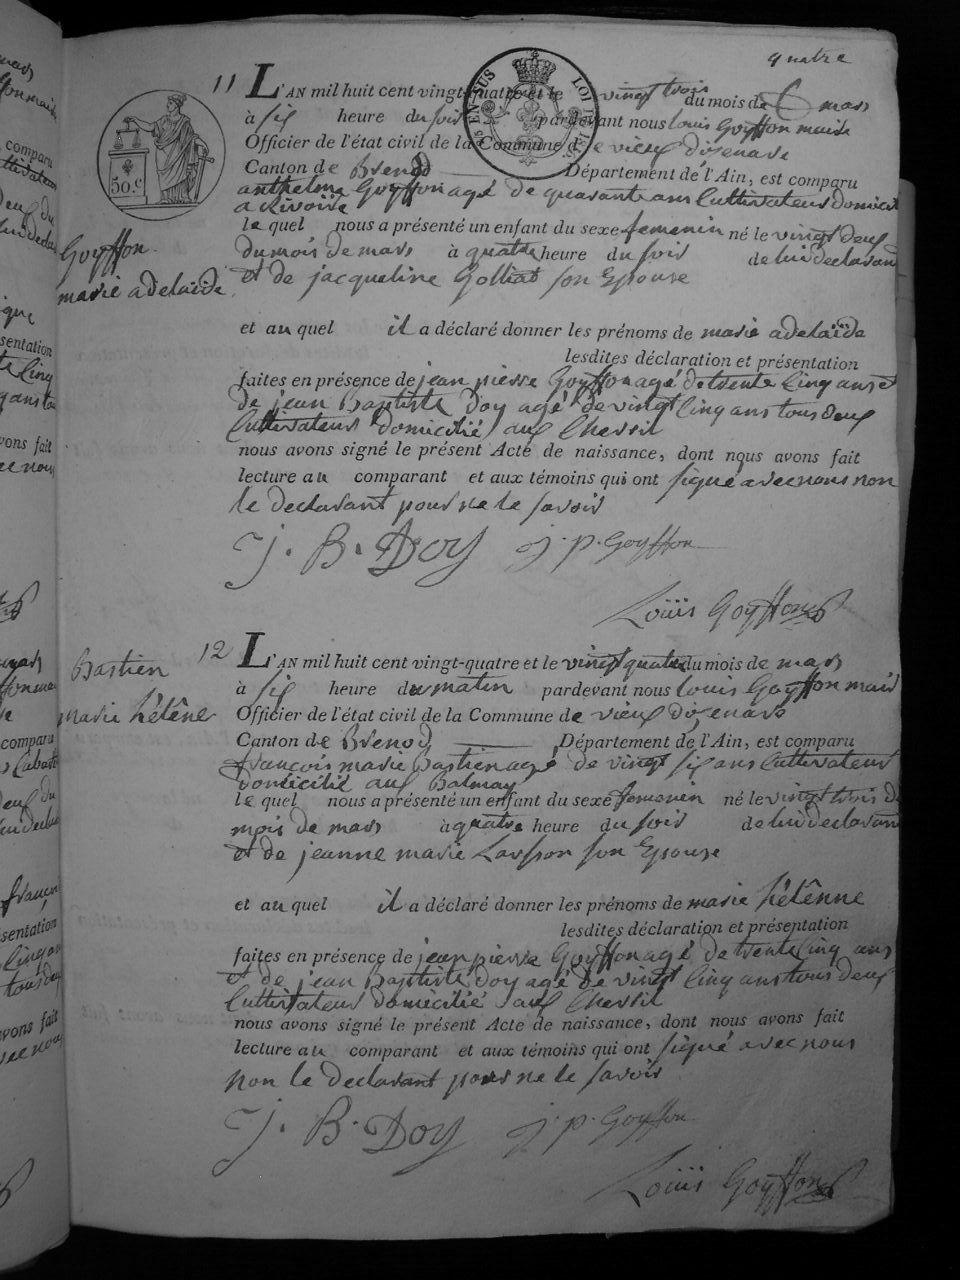 quatre
11 L'AN mil huit cent vingt-quatre et le vingt trois du mois de mars
à six heure du soir pardevant nous louis Goyffon maire
Officier de l'état civil de la Commune de vieux dizenave
Canton de Brenod Département de l'Ain, est comparu
anthelme Goyffon agé de quarante ans Cultivateur domicil
a Rivoire
le quel nous a présenté un enfant du sexe femenin né le vingt deux
du mois de mars à quatre heure du soir de lui declarant
et de jacqueline Golliat son Epouse
Goyffon
marie adelaïde
et au quel il a déclaré donner les prénoms de marie adelaïde
lesdites déclaration et présentation
faites en présence de jean pierre Goyffon agé de trente cinq ans et
de jean Baptiste Doy agé de vingt cinq ans tous deux
Cultivateurs domicilié aux Chevril
nous avons signé le présent Acte de naissance, dont nous avons fait
lecture au comparant et aux témoins qui ont signé avec nous non
le declarant pour ne le savoir
J. B. Doy j. p. Goyffon
Louis Goyffon
50.C
EN SUS LOI DE
12 L'AN mil huit cent vingt-quatre et le vingt quatre du mois de mars
à six heure du matin pardevant nous louis Goyffon maire
Officier de l'état civil de la Commune de vieux dizenave
Canton de Brenod Département de l'Ain, est comparu
françois marie Bastien agé de vingt six ans Cultivateur
domicilié aux Balmay
le quel nous a présenté un enfant du sexe femenin né le vingt trois du
mois de mars à quatre heure du soir de lui declarant
et de jeanne marie Lavson son Epouse
Bastien
marie hélêne
et au quel il a déclaré donner les prénoms de marie hélênne
lesdites déclaration et présentation
faites en présence de jean pierre Goyffon agé de trente cinq ans
et de jean Baptiste Doy agé de vingt cinq ans tous deux
Cultivateurs domicilié aux Chevril
nous avons signé le présent Acte de naissance, dont nous avons fait
lecture au comparant et aux témoins qui ont signé avec nous
non le declarant pour ne le savoir
J. B. Doy j. p. Goyffon
Louis Goyffon